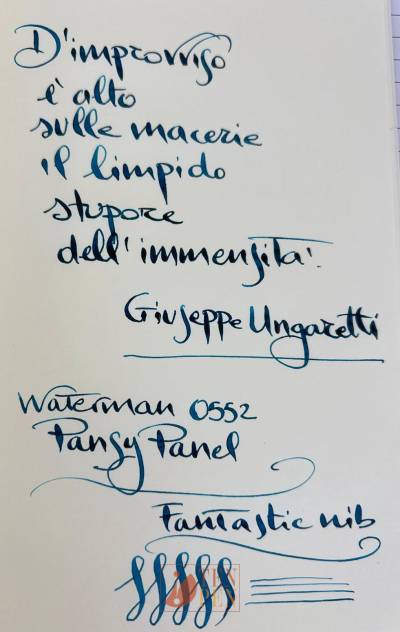 D'improvviso
è alto
sulle macerie
il limpido
stupore
dell'immensità.
Giuseppe Ungaretti
Waterman 0552
Pansy Panel
Fantastic nib